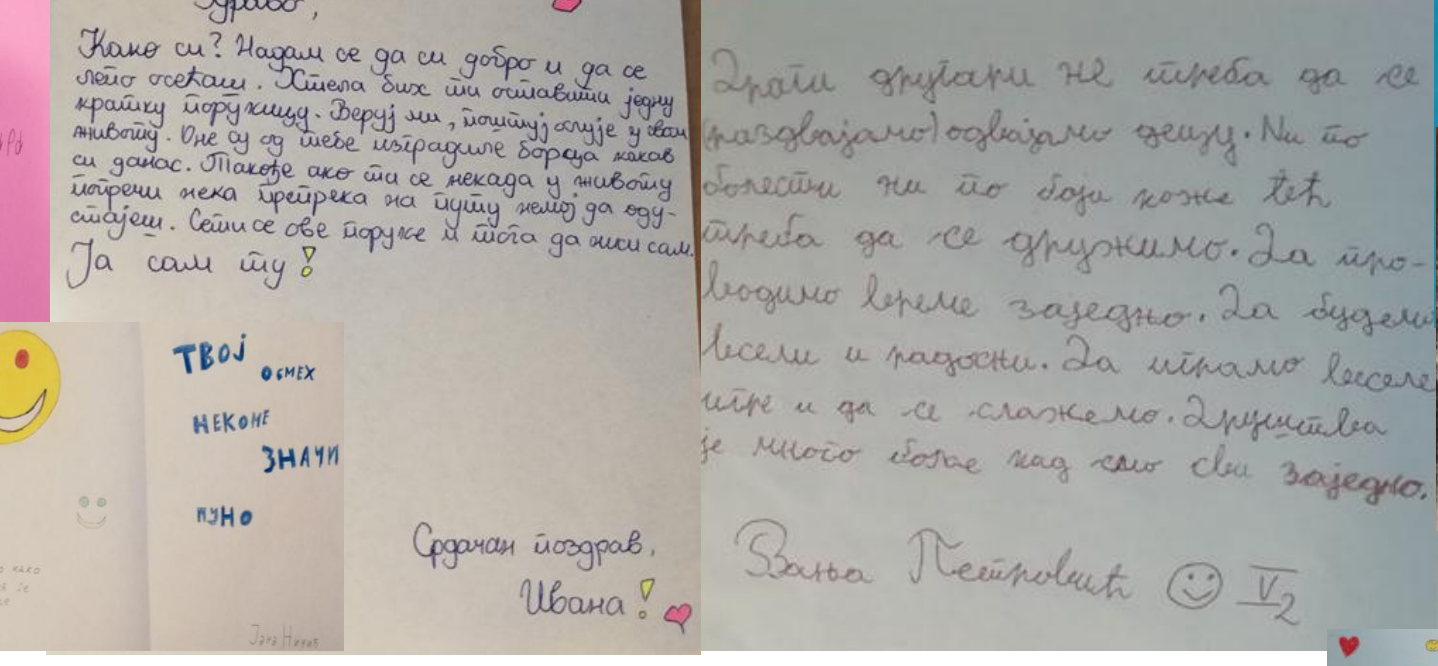 Здраво,
Како си? Надам се да си добро и да се
лепо осећаш. Хтела бих ти оставити једну
кратку поружицу. Веруј ми, поштуј олује у свом
животу. Оне су од тебе изградиле борца какав
си данас. Такође ако ти се некада у животу
попречи нека препрека на путу немој да оду-
стајеш. Сети се ове поруке и тога да ниси сам.
Ја сам ту!
Срдачан поздрав,
Ивана!
ТВОЈ
ОСМЕХ
НЕКОМЕ
ЗНАЧИ
ПУНО
како
је
Јана Никић
Драги другари не треба да се
(раздвајамо) одвајамо децу. Ni по
болести ни по боји коже већ
треба да се дружимо. Да про-
водимо време заједно. Да будемо
весели и радосни. Да играмо веселе
игре и да се слажемо. Друштва
је много боље кад смо сви заједно.
Вања Петровић V2